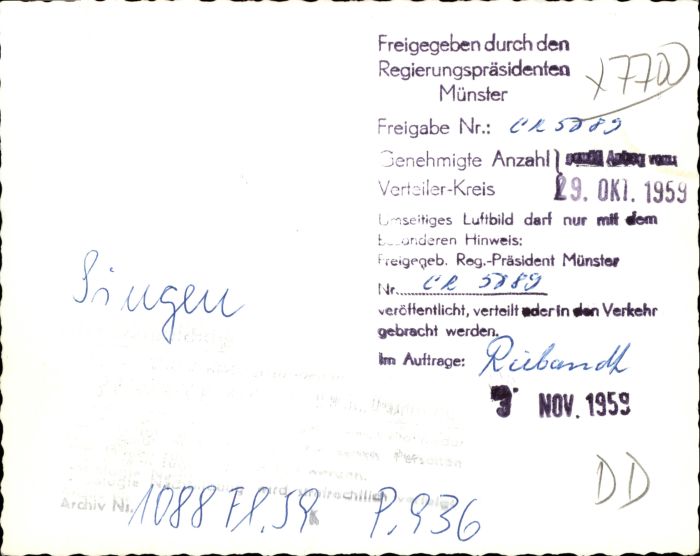 Freigegeben durch den
Regierungspräsidenten
Münster
x7700
Freigabe Nr.: CR 5889
Genehmigte Anzahl
Verteiler-Kreis 29. OKT. 1959
Umseitiges Luftbild darf nur mit dem
besonderen Hinweis:
Freigegeb. Reg.-Präsident Münster
Nr. CR 5889
veröffentlicht, verteilt oder in den Verkehr
gebracht werden.
Im Auftrage:
3. NOV. 1959
Singen
Personen
Archiv Nr. 1088 Fl. 59 P. 936
DD